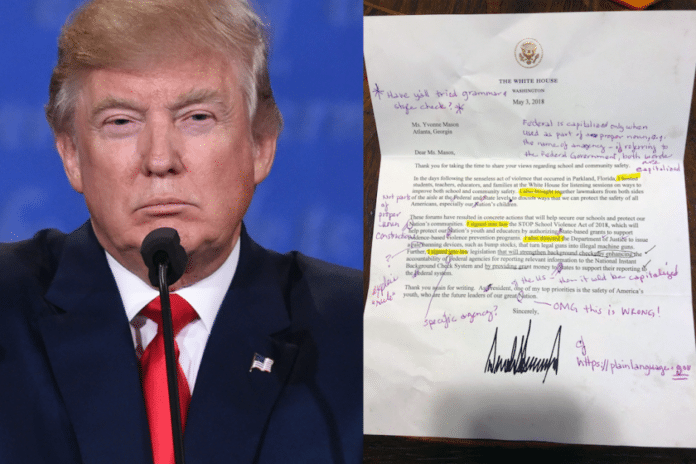 THE WHITE HOUSE
WASHINGTON
May 3, 2018
* Have y'all tried grammar &
style check? *
Ms. Yvonne Mason
Atlanta, Georgia
Federal is capitalized only when
used as part of proper noun, e.g.
the name of an agency - if referring to
the Federal Government, both words
are
capitalized
Dear Ms. Mason,
Thank you for taking the time to share your views regarding school and community safety.
In the days following the senseless act of violence that occurred in Parkland, Florida, I hosted
students, teachers, educators, and families at the White House for listening sessions on ways to
improve both school and community safety. I also brought together lawmakers from both sides
of the aisle at the Federal and State levels to discuss ways that we can protect the safety of all
Americans, especially our Nation's children.
not part
of
proper
noun
These forums have resulted in concrete actions that will help secure our schools and protect our
Nation's communities. I signed into law the STOP School Violence Act of 2018, which will
help protect our Nation's youth and educators by authorizing State-based grants to support
evidence-based violence prevention programs. I also directed the Department of Justice to issue
a rule banning devices, such as bump stocks, that turn legal guns into illegal machine guns.
I signed into law legislation that will strengthen background checks by enhancing the
accountability of Federal agencies for reporting relevant information to the National Instant
Background Check System and by providing grant money to States to support their reporting to
the Federal system.
explain
"rule"
of the US - then it would be capitalized
Thank you again for writing. As President, one of my top priorities is the safety of America's
youth, who are the future leaders of our great Nation.
OMG this is WRONG!
Specific agency?
Sincerely,
https://plainlanguage.gov